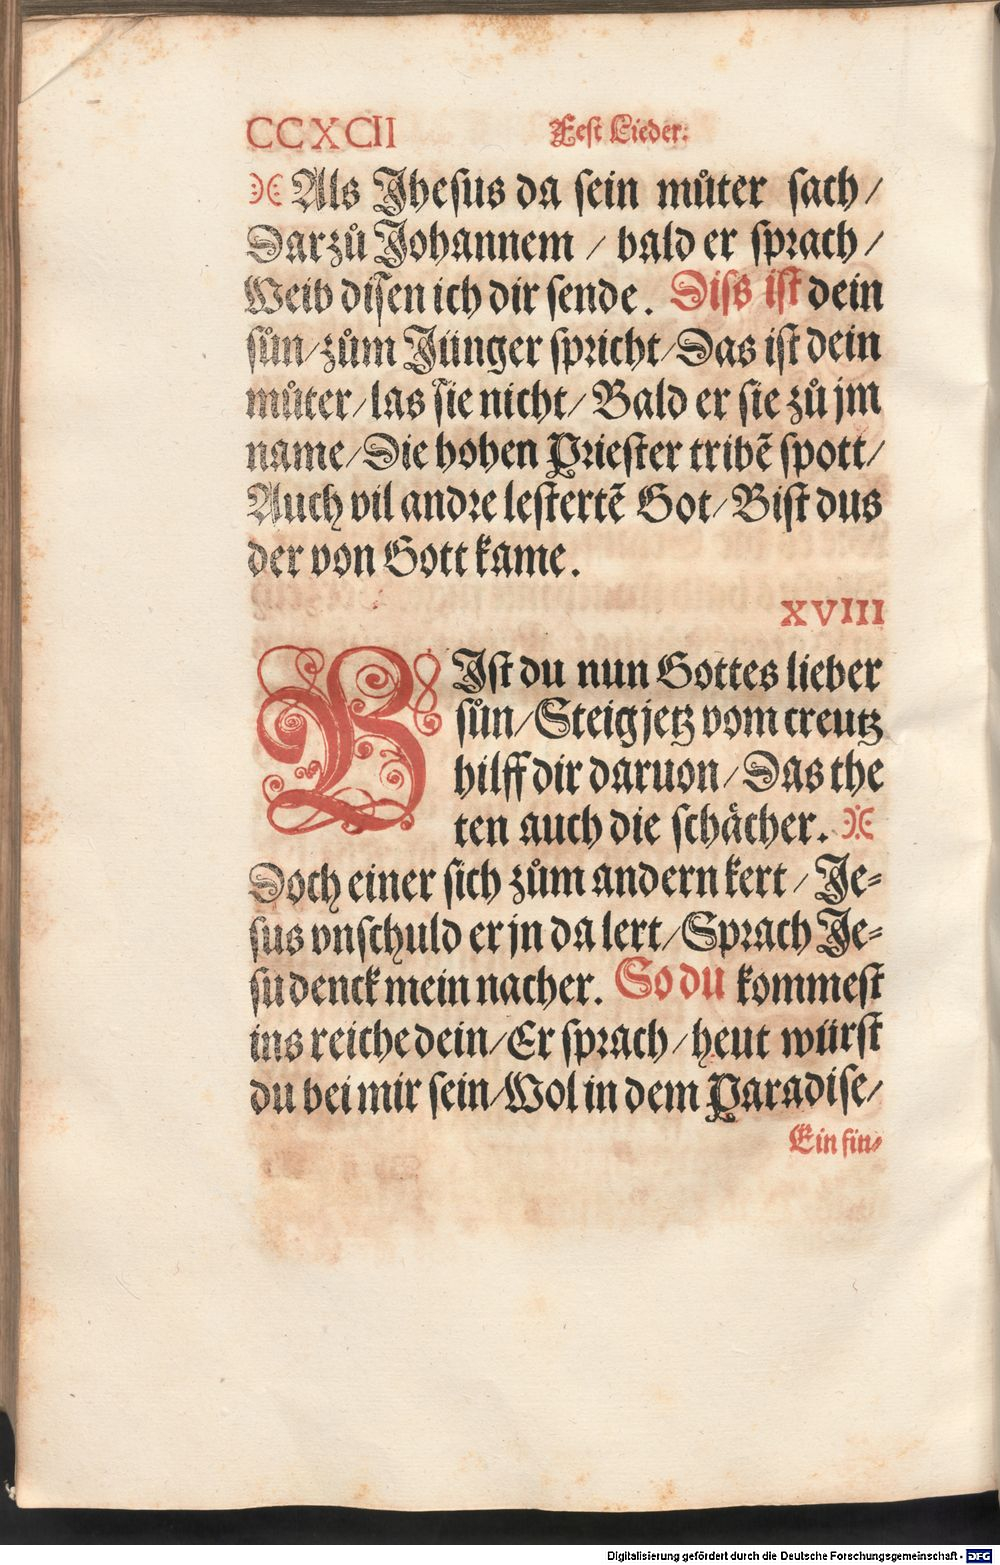 CCXCII Fest Lieder:
Als Jhesus da sein můter sach/
Darzů Johannem / bald er sprach/
Weib disen ich dir sende. Diss ist dein
sůn/zům Jünger spricht/Das ist dein
můter/las sie nicht/Bald er sie zů jm
name/Die hohen Priester tribẽ spott/
Auch vil andre lestertẽ Got/Bist dus
der von Gott kame.
XVIII
BIst du nun Gottes lieber
sůn/Steig jetz vom creutz
hilff dir daruon/Das the
ten auch die schächer.
Doch einer sich zům andern kert/Je=
sus vnschuld er jn da lert/Sprach Je=
su denck mein nacher. So du kommest
ins reiche dein/Er sprach/heut würst
du bei mir sein/Wol in dem Paradise/
Ein fin=
Digitalisierung gefördert durch die Deutsche Forschungsgemeinschaft - DFG